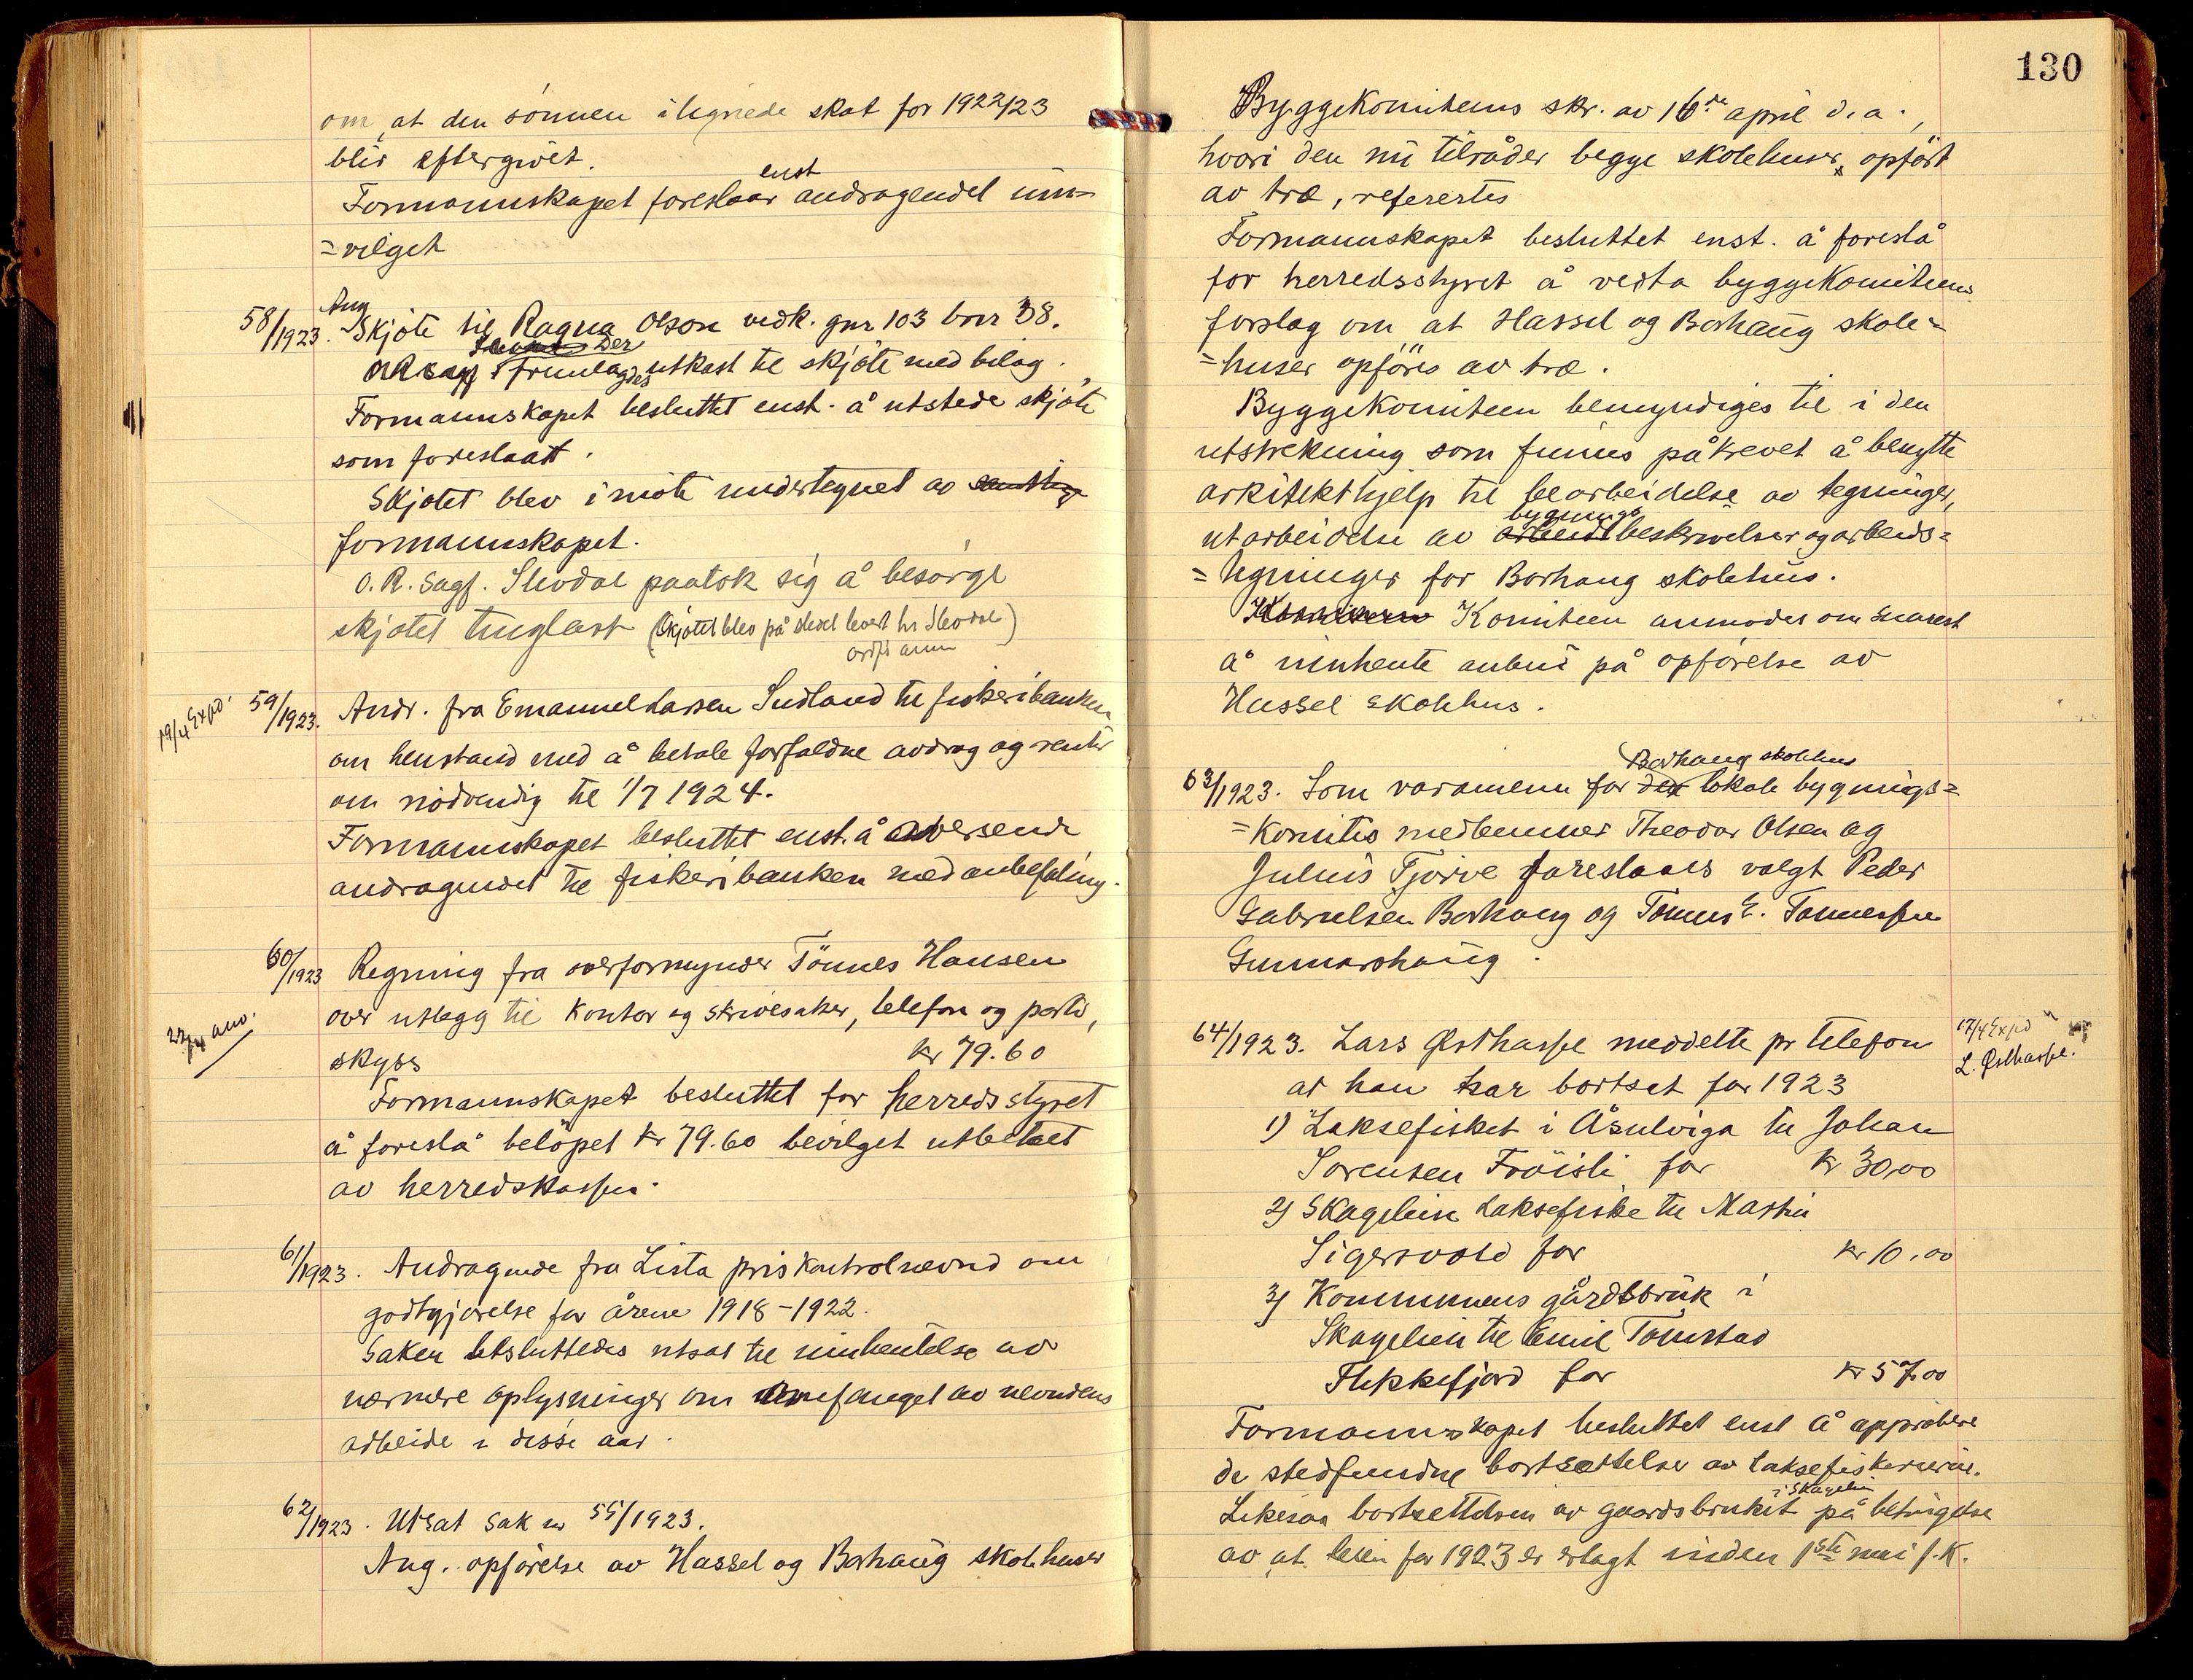 om at den sønnen ilignede skat for 1922/23
blir eftergivet.
enst
Formannskapet foreslaar andragendet inn-
=vilget
58/1923. Ang
Skjøte til Ragna Olson vedk. gnr 103 bnr 38.
Der
fremlagdes utkast til skjøte med bilag.
Formannskapet besluttet enst. å utstede skjøte
som foreslaatt.
Skjøtet blev i møte undertegnet av
formannskapet.
O.R. Sagf. Skodol paatok sig å besørge
skjøtet tinglæst (Skjøtet blev på stedet levert hr Skodol)
ordf. anm
19/4 Expd.
59/1923. Andr. fra Emanuel Larsen Sudland til fiskeribanken
om henstand med å betale forfaldne avdrag og renter
om nødvendig til 1/7 1924.
Formannskapet besluttet enst. å oversende
andragendet til fiskeribanken med anbefaling.
60/1923 Regning fra overformynder Tønnes Hansen
over utlegg til kontor og skrivesaker, telefon og porto,
22/4 anv.
skyss kr 79.60
Formannskapet besluttet for herredsstyret
å foreslå beløpet kr 79.60 bevilget utbetalt
av herredskassen.
61/1923. Andragende fra Lista priskontrolnevnd om
godtgjørelse for årene 1918-1922.
Saken besluttedes utsat til innhentelse av
nærmere oplysninger om omfanget av nevndens
arbeide i disse aar.
62/1923. Utsat sak nr 55/1923.
Ang. opførelse av Hassel og Borhaug skolehuser
130
Byggekomiteens skr. av 16de april d.a.,
hvori den nu tilråder begge skolehuser opført
av træ, refertes
Formannskapet besluttet enst. å foreslå
for herredsstyret å vedta byggekomiteens
forslag om at Hassel og Borhaug skole=
=huser opføres av træ.
Byggekomiteen bemyndiges til i den
utstrekning som finnes påkrevet å benytte
arkitekthjelp til bearbeidelse av tegninger,
bygnings
utarbeidelse av arbeids beskrivelser og arbeids=
=tegninger for Borhaug skolehus.
Komiteen anmodes om snarest
å innhente anbud på opførelse av
Hassel skolehus.
Borhaug skolehus
63/1923. Som varamenn for den lokale bygnings=
=komites medlemmer Theodor Olsen og
Julius Tjørve foreslaaes valgt Peder
Gabrielsen Borhaug og Tønnes E. Tønnessen
Gunnarshaug.
64/1923. Lars Østhasse meddelte pr telefon
17/4 Expd
L. Østhasse.
at han har bortset for 1923
1) Laksefisket i Åsulviga til Johan
Sørensen Frøisli for kr 30,00
2) Skagelien laksefiske til Martin
Sigersvold for kr 10,00
3) Kommunens gårdsbruk i
Skagelien til Emil Tomstad
Flekkefjord for kr 57,00
Formannskapet besluttet enst å approbere
de stedfundne bortsettelser av laksefiskerierne.
i Skagelien
Likesaa bortsettelsen av gaardsbruket på betingelse
av at leien for 1923 er erlagt inden 1ste mai f.k.